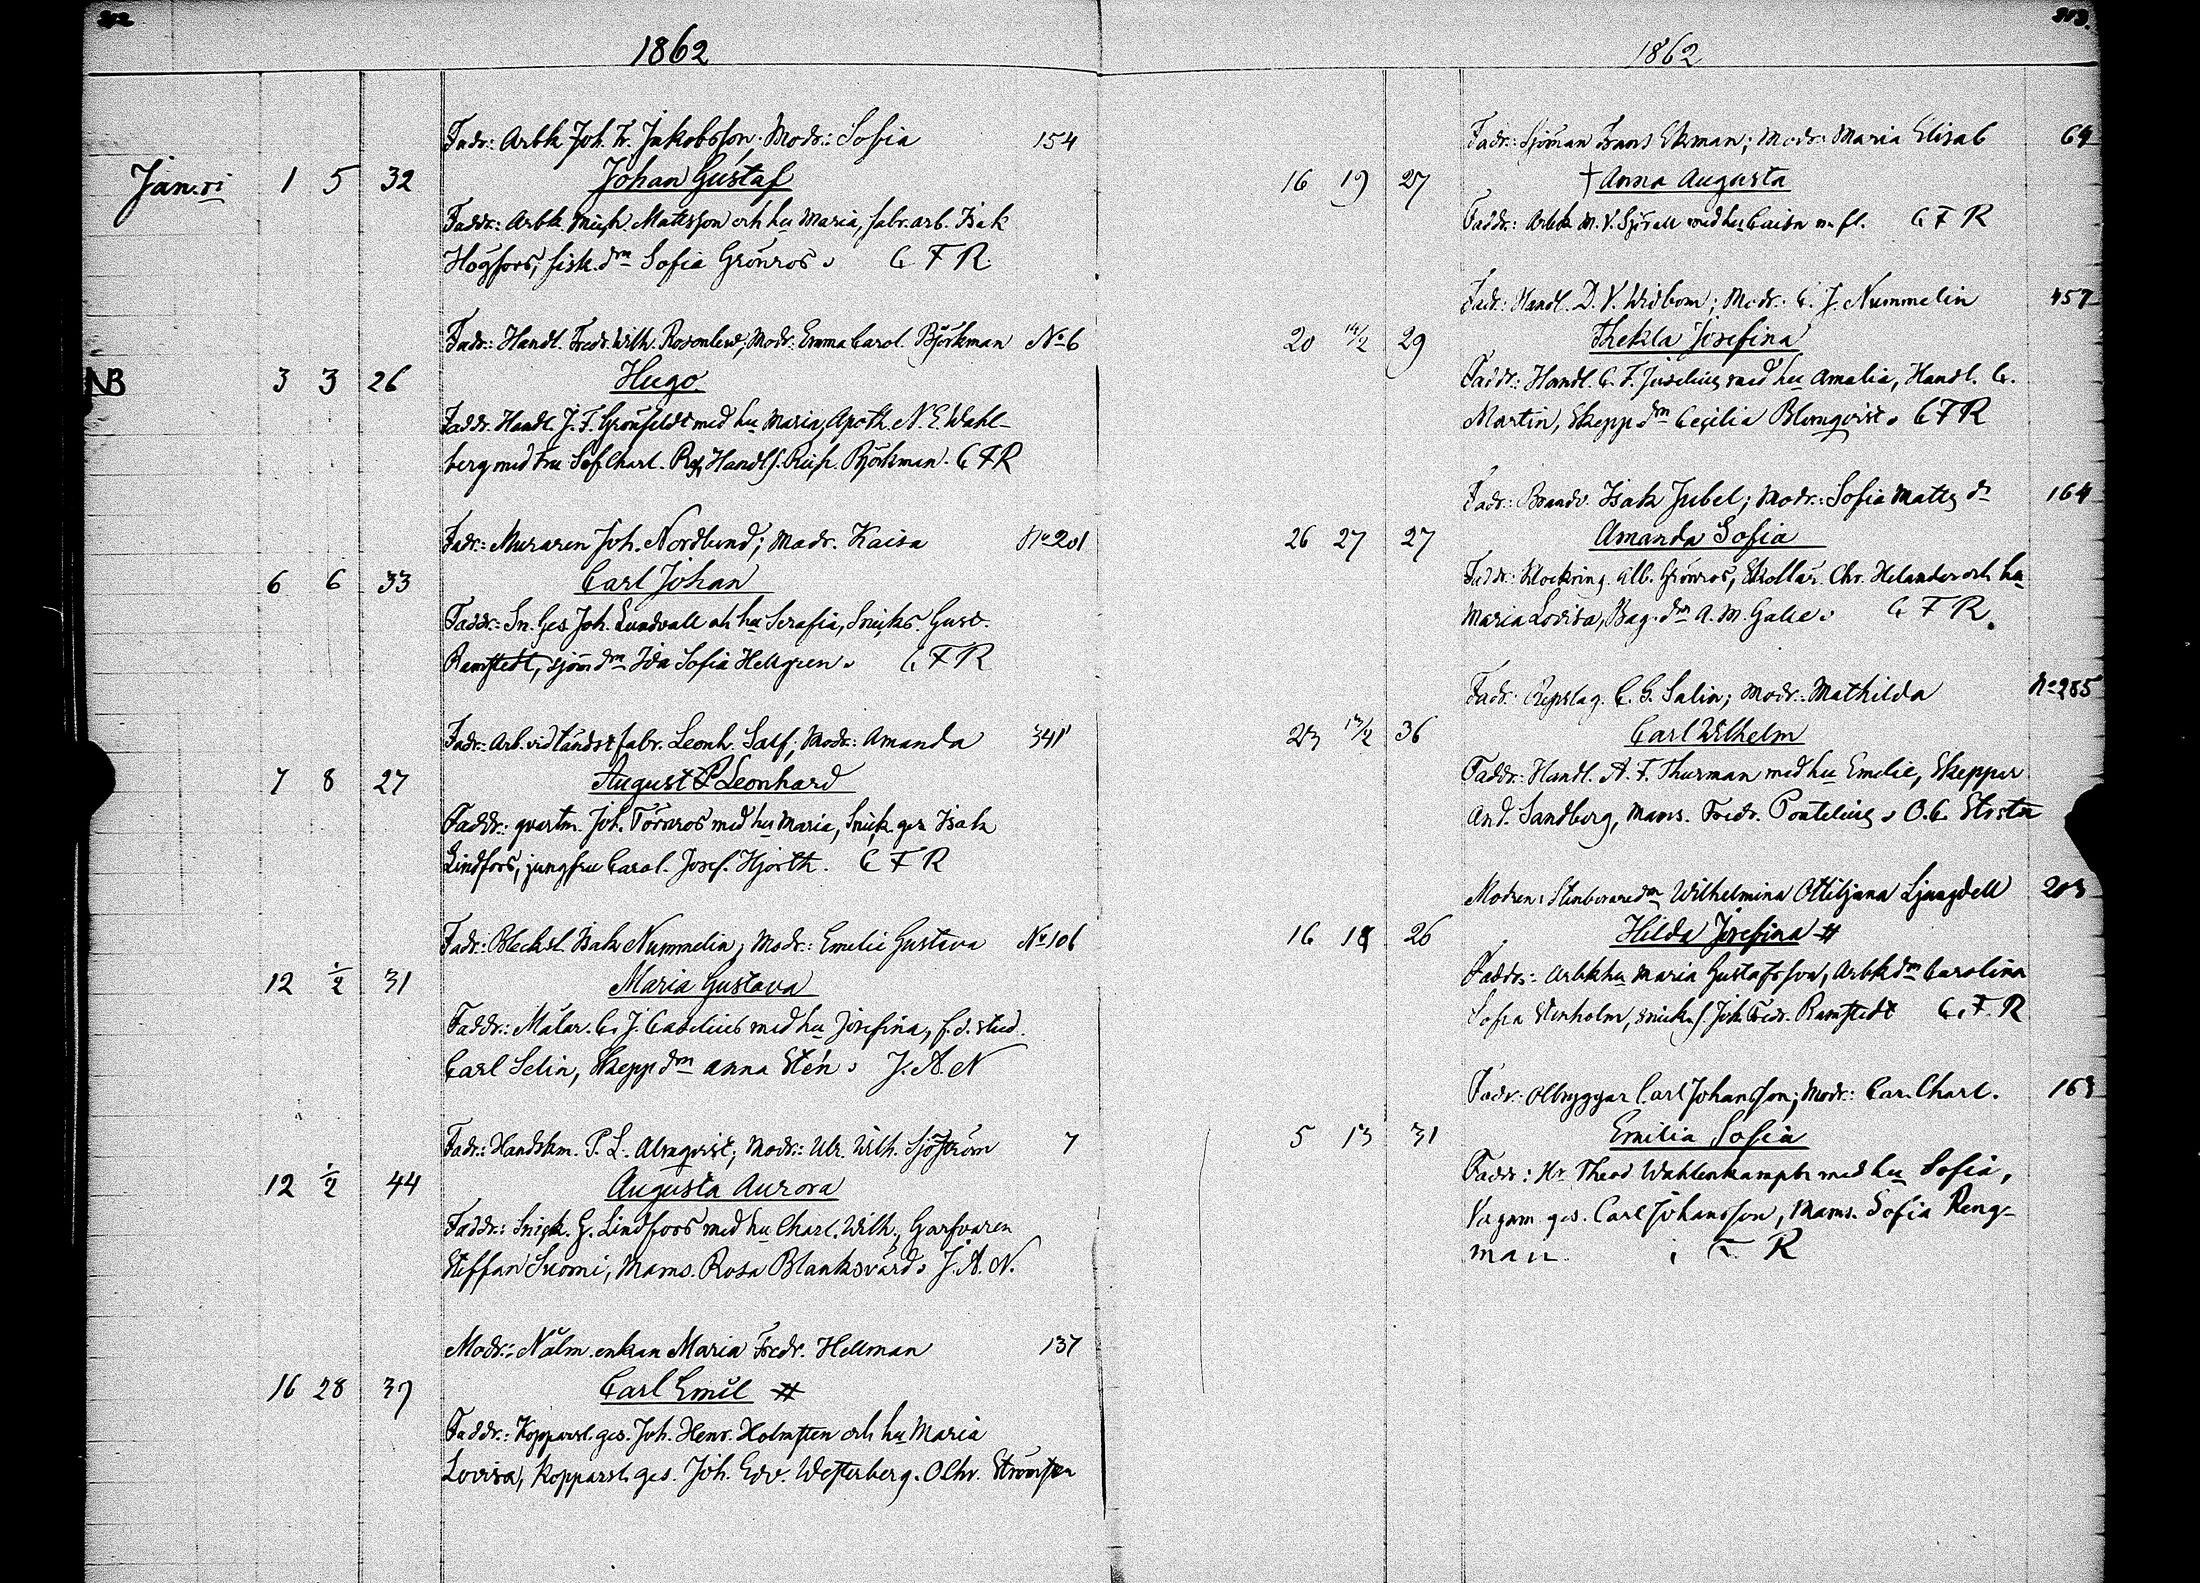 212
1862
Fadr: Arbk Joh. F. Jakobsson; Modr: Sofia 154
Jan:ri 1 5 32 Johan Gustaf
Faddr: Arbk. Mich. Mattsson och hu Maria, fabr. arb. Isak
Högfors, fisk. drn Sofia Grönros. C F R
Fadr: Handl. Fredr. Wilh. Rosenlew; Modr: Emma Carol. Björkman No 6
NB 3 3 26 Hugo
Faddr. Handl. J. F. Grönfeldt med hu Maria, Apoth. N. E. Wahl-
berg med fru Sof Charl. Handls. Björkman. C F R
Fadr: Muraren Joh. Nordlund; Modr. Kaisa No 201
6 6 33 Carl Johan
Faddr: Sn. Ges. Joh. Lundvall och hu Serafia, Snicks. Gust.
Ramstedt, sjöm drn Ida Sofia Hellgren. C F R
Fadr: Arb. vid tändst fabr. Leonh. Salf; Modr: Amanda 341
7 8 27 August Leonhard
Faddr: qvartm. Joh. Törnros med hu Maria, Snick. ges Isak
Lindfors, jungfru Carol. Josef. Hjorth. C F R
Fadr: Blecksl. Isak Nummelin; Modr: Emelie Gustava No 106
12 1/2 31 Maria Gustava
Faddr: Målar. C. J. Caselius med hu Josefina, f. d. stud.
Carl Selin, Skepp drn Anna Stén. J. A. N
Fadr: Handskm. P. L. Almqvist; Modr: Ulr. Wilh. Sjöström 7
12 1/2 44 Augusta Aurora
Faddr: Snick. G. Lindfors med hu Charl. Wilh., Garfvaren
Steffan Suomi, Mams. Rosa Blanksvärd. J. A. N.
Modr: Nålm. enkan Maria Fredr. Hellman 137
16 28 39 Carl Emil #
Faddr: Kopparsl. ges. Joh. Henr. Holmsten och hu Maria
Lovisa, Kopparsl. ges. Joh. Edv. Westerberg. O Chr. Strömsten
213
1862
Fadr: Sjöman Frans Ekman; Modr: Maria Elisab 64
16 19 27 † Anna Augusta
Faddr: Arbk M. V. Sjövall med hu Caisa m. fl. C F R
Fadr: Handl. D. V. Widbom; Modr: C. J. Nummelin 157
20 14/2 29 Thekla Josefina
Faddr: Handl. C. F. Juselius med hu Amalia, Handl. C.
Martin, Skepp. drn Cecilia Blomqvist. C F R
Fadr: Brandv. Isak Jubel; Modr: Sofia Matts dr 164
26 27 27 Amanda Sofia
Faddr: Klockring. Alb. Grönros, Skollär. Chr. Helander och hu
Maria Lovisa, Bag. drn A. M. Galle. C F R.
Fadr: Repslag. C. G. Salin; Modr: Mathilda No 285
23 13/2 36 Carl Wilhelm
Faddr: Handl. A. F. Thurman med hu Emelie, Skeppar
And. Sandberg, Mams. Fredr. Pontelius. O. C.
Modren: drn Wilhelmina Ottiljana Ljungdell 203
16 18 26 Hilda Josefina #
Faddr: Arbk hu Maria Gustafsson, Arbk drn Carolina
Sofia Stenholm, snick. s. Joh. Fredr. Ramstedt C. F. R
Fadr: Ölbryggar Carl Johansson; Modr: Car. Charl. 163
5 13 31 Emilia Sofia
Faddr: Hr Theod Wahlenkampf med hu Sofia,
Vagnm ges. Carl Johansson, Mams. Sofia Reng-
man F R